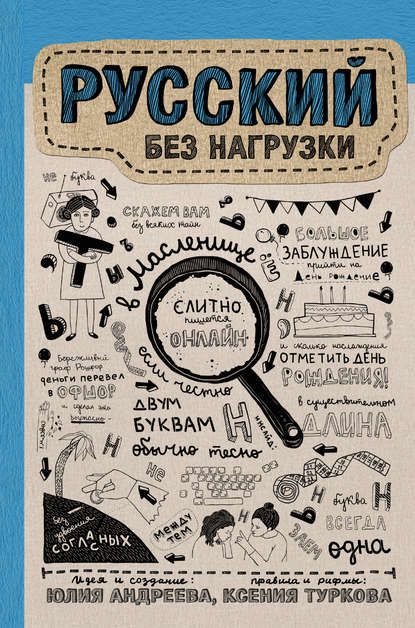 РУССКИЙ
БЕЗ НАГРУЗКИ
не буква
СКАЖЕМ ВАМ
без всяких тайн
Слитно
пишется
ОНЛАЙН
БОЛЬШОЕ
ЗАБЛУЖДЕНИЕ
прийти на
День рождение
и сколько наслаждения
ОТМЕТИТЬ ДЕНЬ
РОЖДЕНИЯ!
Бережливый
граф Рошфор
деньги перевел
в ОФШОР
и сделал это
в масленице
если честно
ДВУМ
БУКВАМ Н
обычно тесно
инсайд:
в существительном
ДЛИНА
не
без удвоения
СОГЛАСНЫХ
МЕЖДУ
ТЕМ
буква Н
ВСЕГДА
одна
Идея и создание:
правила и рифмы:
ЮЛИЯ АНДРЕЕВА, КСЕНИЯ ТУРКОВА